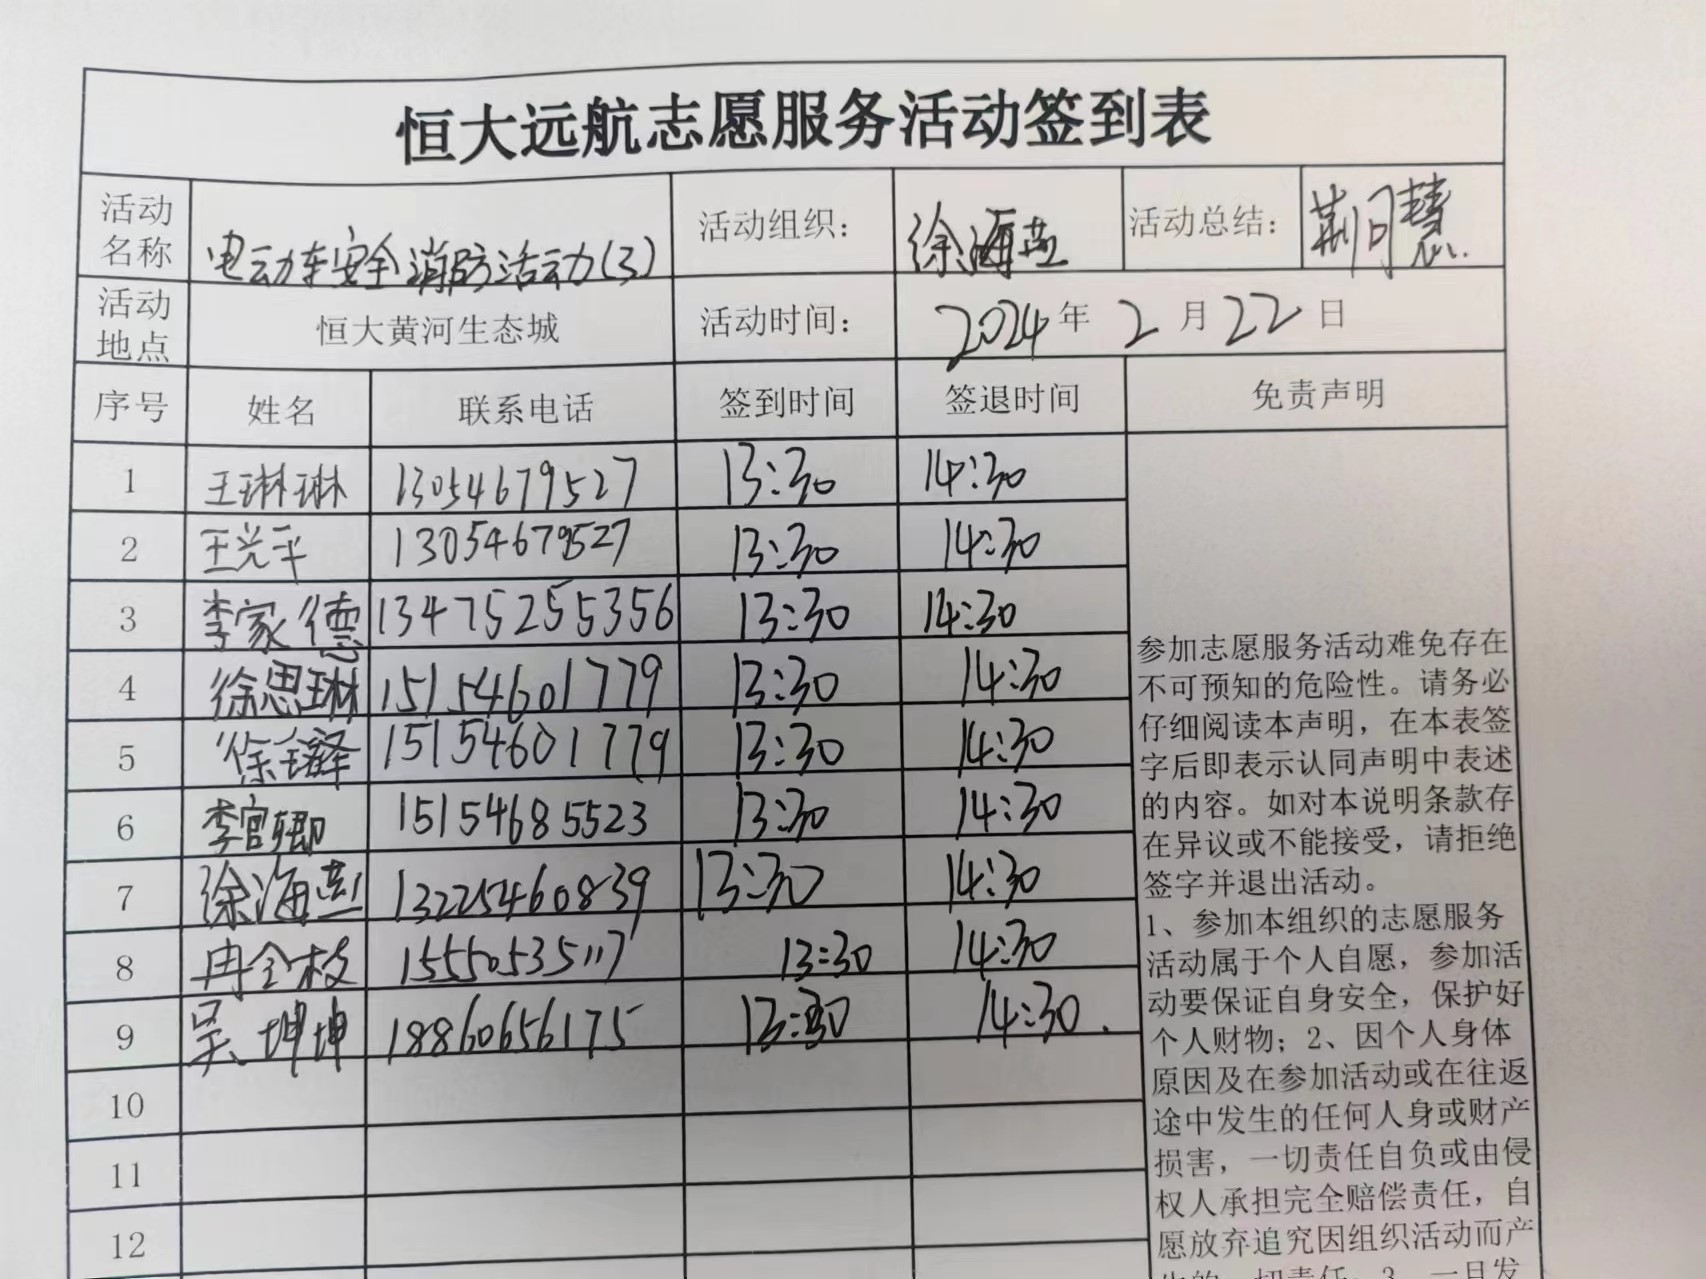 恒大远航志愿服务活动签到表
活动名称 电动车安全消防活动(3) 活动组织: 徐海燕 活动总结: 荆同慧
活动地点 恒大黄河生态城 活动时间: 2024年2月22日
序号 姓名 联系电话 签到时间 签退时间 免责声明
1 王琳琳 13054679527 13:30 14:30
2 王光平 13054679527 13:30 14:30
3 李家德 13475255356 13:30 14:30
4 徐思琳 15154601779 13:30 14:30
5 徐 15154601779 13:30 14:30
6 李宫卿 15154685523 13:30 14:30
7 徐海燕 13225460839 13:30 14:30
8 冉全枝 15550535117 13:30 14:30
9 吴坤坤 18860656175 13:30 14:30.
10
11
12
参加志愿服务活动难免存在
不可预知的危险性。请务必
仔细阅读本声明，在本表签
字后即表示认同声明中表述
的内容。如对本说明条款存
在异议或不能接受，请拒绝
签字并退出活动。
1、参加本组织的志愿服务
活动属于个人自愿，参加活
动要保证自身安全，保护好
个人财物；2、因个人身体
原因及在参加活动或在往返
途中发生的任何人身或财产
损害，一切责任自负或由侵
权人承担完全赔偿责任，自
愿放弃追究因组织活动而产
生的一切责任。3、一旦发